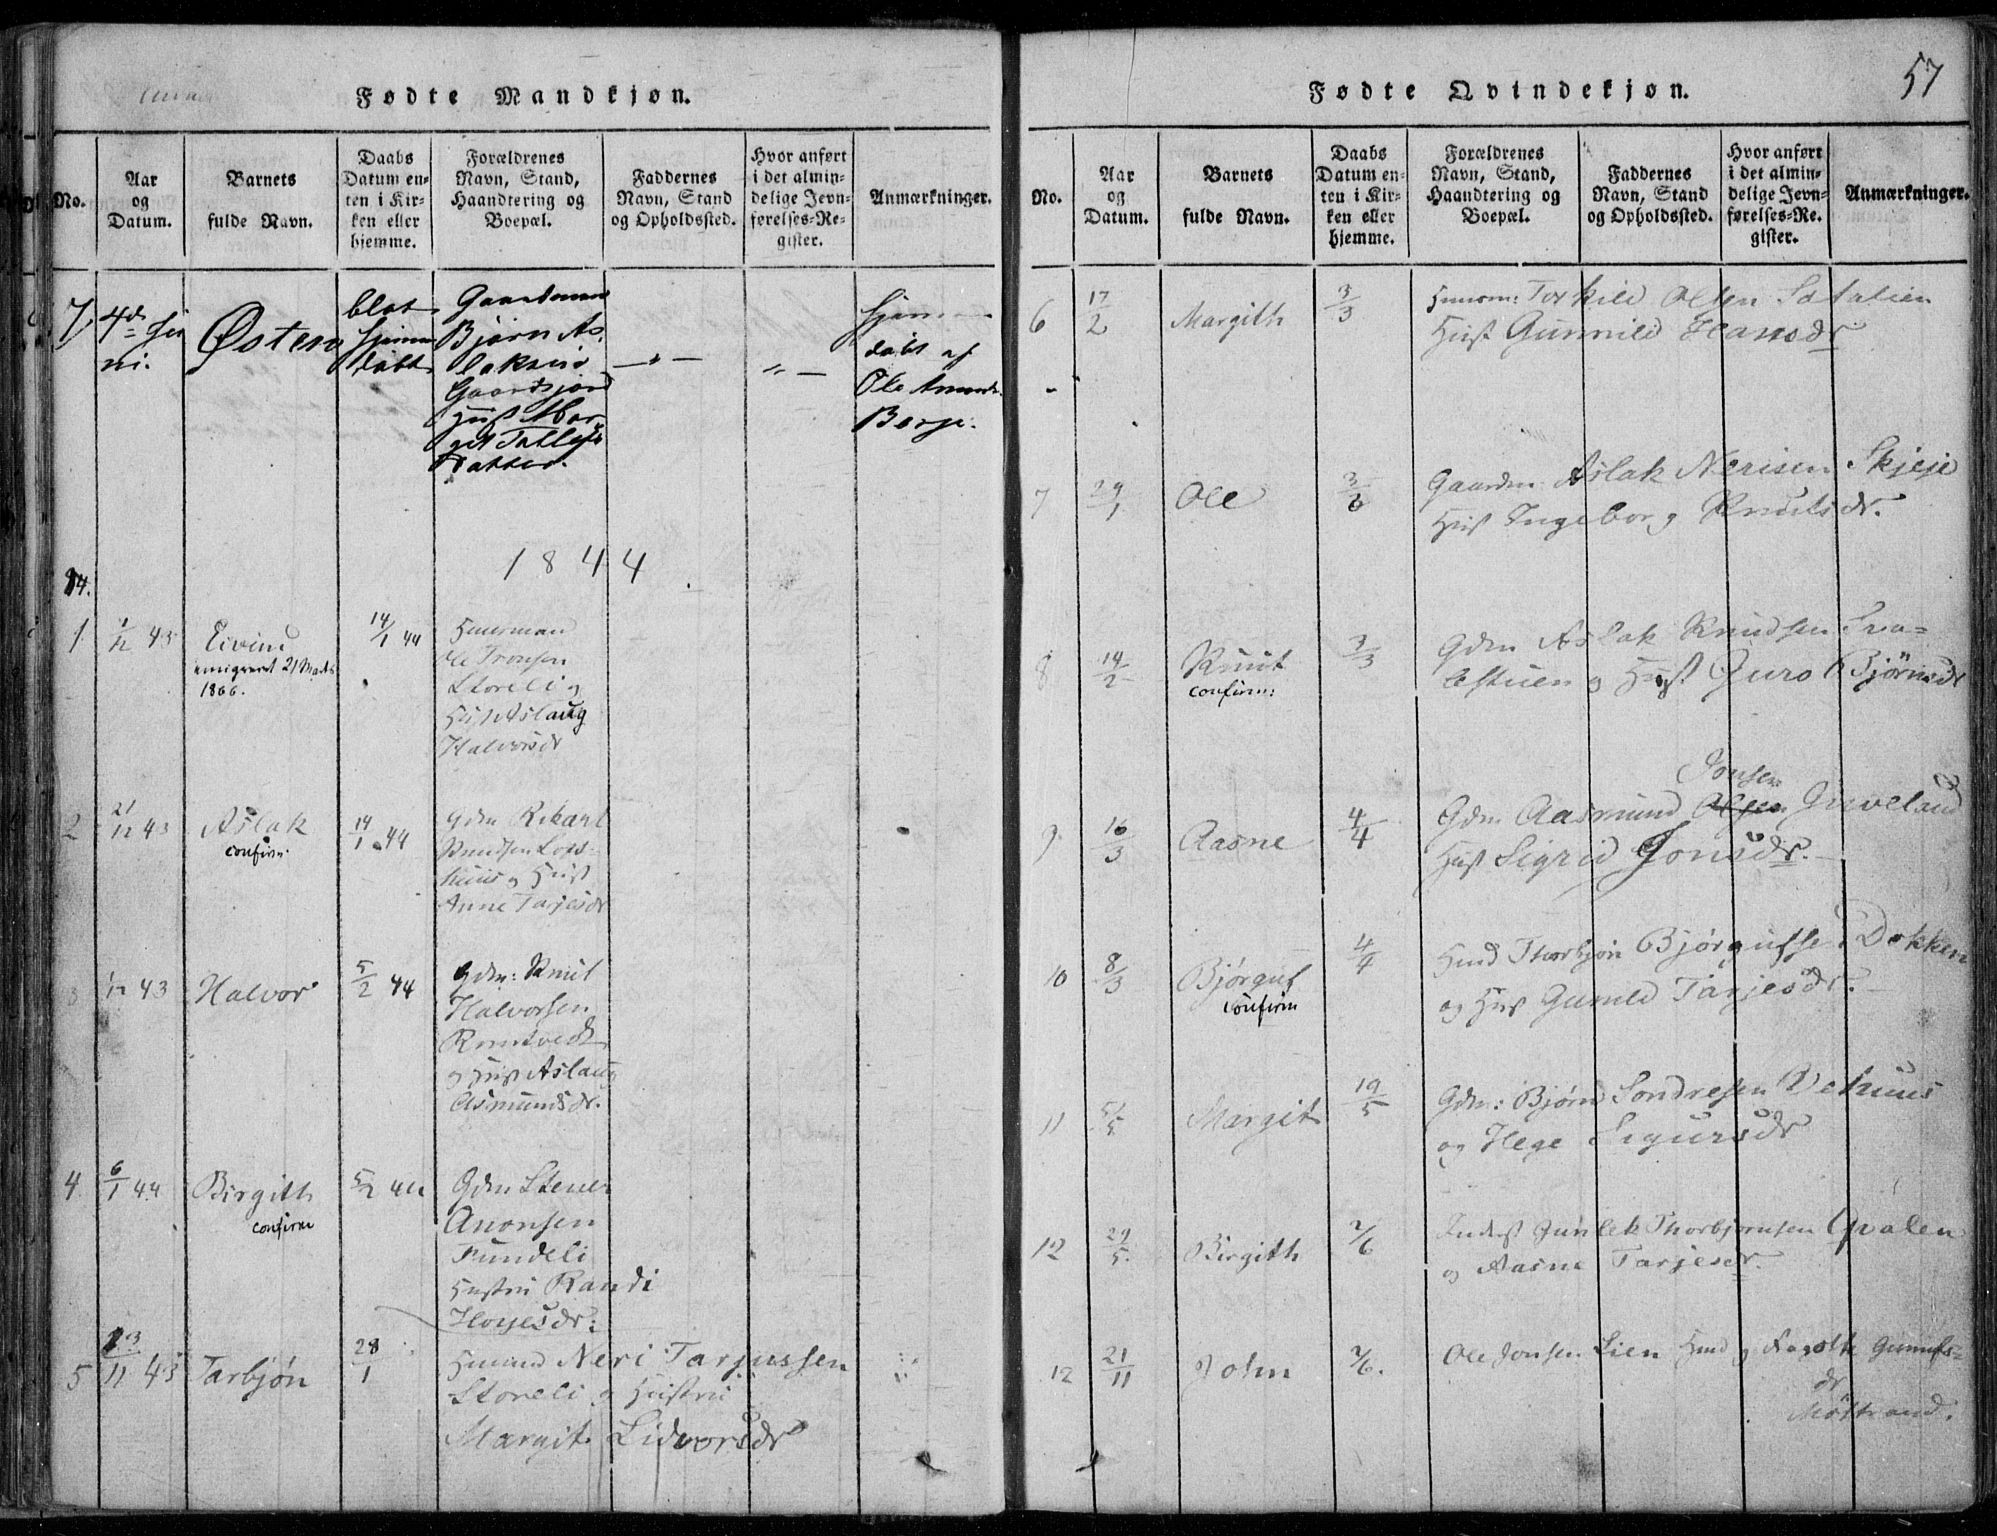 Fødte Mandkjøn.
No.
Aar
og
Datum.
Barnets
fulde Navn.
Daabs
Datum en-
ten i Kir-
ken eller
hjemme.
Forældrenes
Navn, Stand,
Haandtering og
Boepæl.
Faddernes
Navn, Stand
og Opholdssted.
Hvor anført
i det almin-
delige Jevn-
førelses-Re-
gister.
Anmærkninger.
7.
4de Ju
ni.
Østen
blot
hjemme
døbt
Gaardmand
Bjørn As
laksen
Gaardsjord
Hust Mar
git Tallefs
Datter.
— " —
" —
Hjemme
døbt af
Ole Amunds
Berge.
1844
1
1/12 43
Eivind
emigreret 21 Marts
1866.
14/1 44
Huusmand
Ole Tronsen
Storeli og
Hust Aslaug
Halvorsdr
2
21/12 43
Aslak
confirm.
14/1 44
Gdm Rikart
Knudsen Lofs-
huus og Hust
Anne Tarjesdr
3
1/12 43
Halvor
5/2 44
Gdm: Knut
Halvorsen
Romtvedt
og Hust Aslaug
Asmundsdr.
4
6/1 44
Birgith
confirm
5/2 44
Gdm Stener
Anonsen
Fundeli
Hustru Randi
Hoyesdr:
5
23/11 43
Tarbjøn
28/1
Huusmd Neri Tarjussen
Storeli og Hustru
Margit Lidvorsdr
57
Fødte Qvindekjøn.
No.
Aar
og
Datum.
Barnets
fulde Navn.
Daabs
Datum en-
ten i Kir-
ken eller
hjemme.
Forældrenes
Navn, Stand,
Haandtering og
Boepæl.
Faddernes
Navn, Stand
og Opholdssted.
Hvor anført
i det almin-
delige Jevn-
førelses-Re-
gister.
Anmærkninger.
6
17/2
Margith
3/3
Huusm: Torkild Olsen
Hust Gunnild Hansdr
7
29/1
Ole
3/3
Gaardm Aslak Nerisen Skjeje
Hust Ingeborg Knutsdr.
8
14/2
Knut
confirm:
3/3
Gdm Aslak Knudsen Tra-
estuen og Hust Guro Bjørnsdr
9
16/3
Aasne
4/4
Jonsen
Gdm Aasmund Olsen Gruveland
Hust Sigrid Jonsdr.
10
8/3
Bjørguf
confirm
4/4
Husmd Thorbjøn Bjørgufsen Dokken
og Hust Gunild Tarjesdr.
11
5/5
Margit
19/5
Gdm: Bjørn Sondresen Vehuus
og Hege Sigursdr
12
29/5.
Birgith
2/6
Inderst Gunlek Thorbjørnsen Qvalen
og Aasne Tarjesdr.
12
21/11
John
2/6.
Ole Jonsen Lien Husmd og Aagoth Gunnufs-
dr
Møstrand.